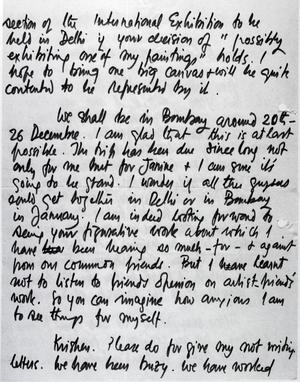 section of the International Exhibition to be
held in Delhi if your decision of "possibly
exhibiting one of my paintings" holds. I
hope to bring one big canvas & will be quite
contented to be represented by it.
We shall be in Bombay around 20th-
26 Decembre. I am glad that this is at last
possible. The trip has been due since long not
only for me but for Janine & I am sure it's
going to be grand. I wonder if all the guys
could get together in Delhi or in Bombay
in January. I am indeed looking forward to
seeing your figurative work about which I
have been hearing so much - for - & against
from our common friends. But I have learnt
not to listen to friends opinion on artist-friends'
work. So you can imagine how anxious I am
to see things for myself.
Krishen. Please do forgive my not writing
letters. We have been busy. We have worked